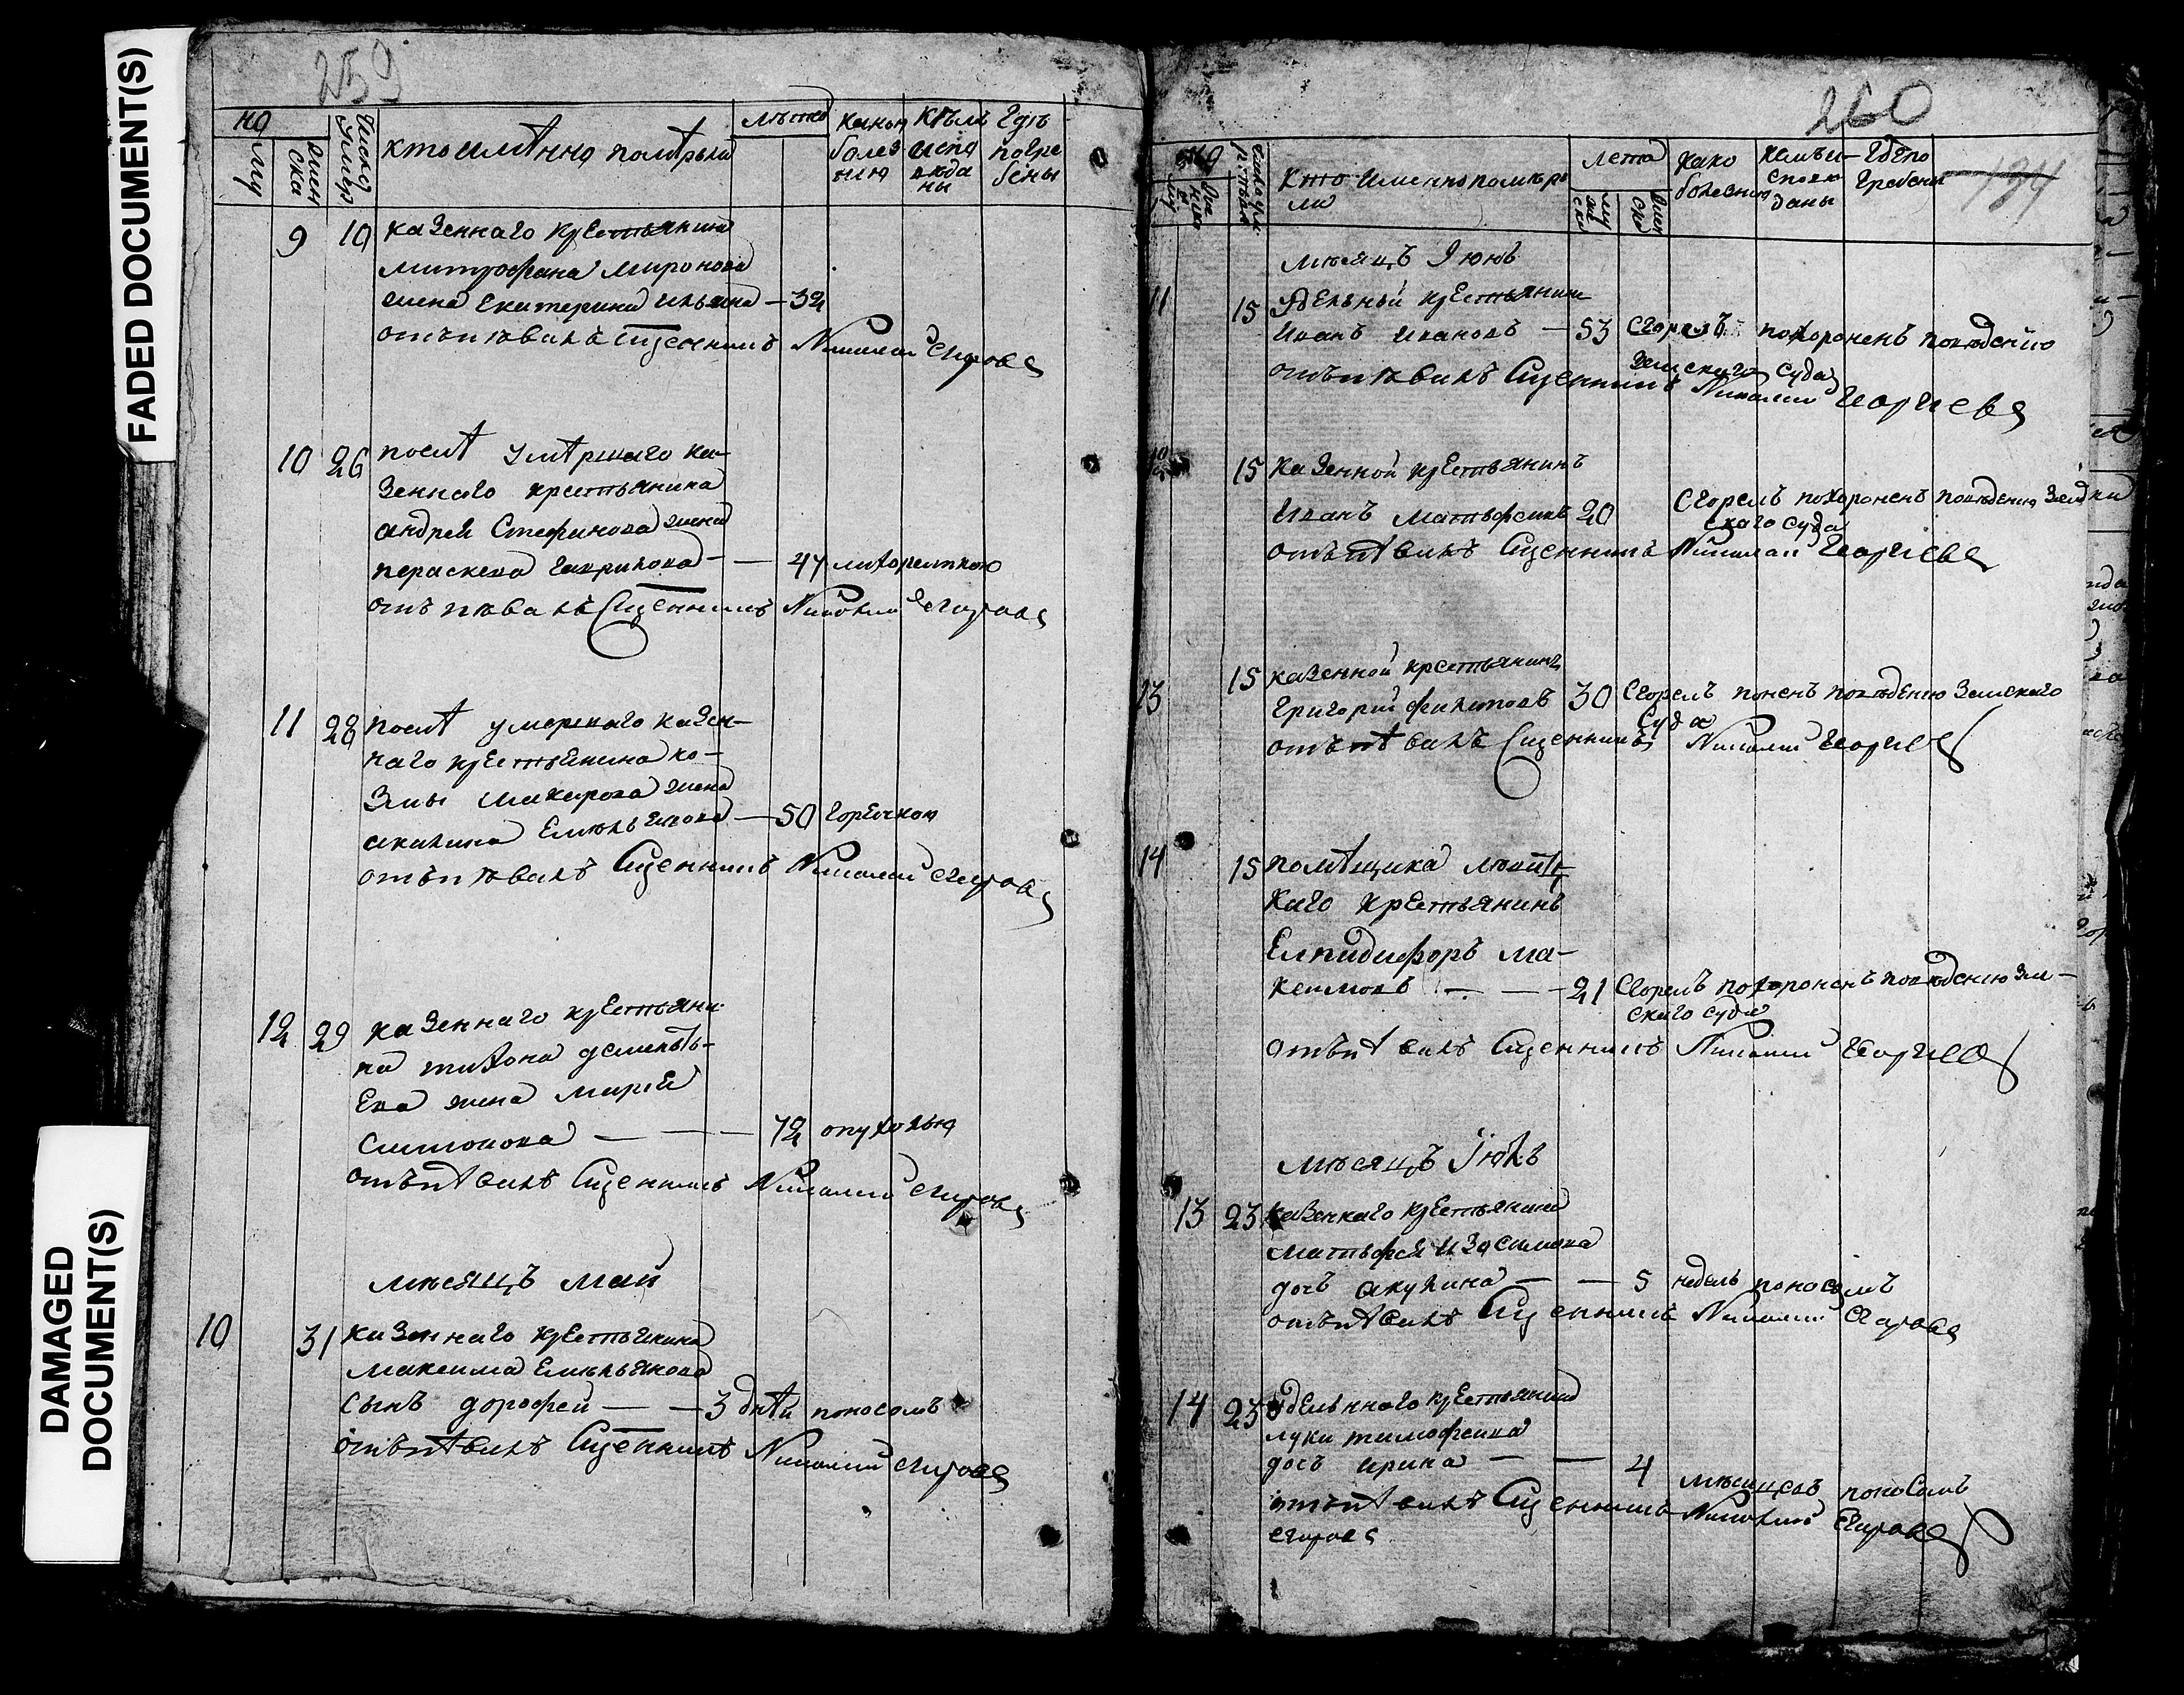 FADED DOCUMENT(S)
DAMAGED
DOCUMENT(S)
259
но
му
женска
число умер
кто имѣнно помѣрьли
лѣта
какою болезнию
кѣмъ исповѣданы
гдѣ погребены
9 19 казеннаго крестьянина
митрофана миронова
жена екатерина ильина — 32
отъпѣвалъ Сщенникъ Николай Егоровъ
10 26 послѣ умѣршаго ка-
зеннаго крестьянина
андрея Стефанова жена
пераскева гаврилова — — 47 лихораткою
отъпѣвалъ Сщенникъ Николай Егоровъ
11 28 послѣ умершаго казен-
наго крестьянина ко-
змы макарова жена
акилина Емельянова — 50 горячкою
отъпѣвалъ Сщенникъ Николай Егоровъ
12 29 казеннаго крестьяни-
на тихона деменьтъ-
Ева жена марья
симонова — — — 72 опухолью
отъпѣвалъ Сщенникъ Николай Егоровъ
мѣсяцъ май
10 31 казеннаго крестьянина
максима Емельянова
сынъ дорофей — — 3 дней поносомъ
отъпѣвалъ Сщенникъ Николай Егоровъ
260
194
кто именно помьрьли
лета
како болезнию
кемъ исповеданы
где погребены
мѣсяцъ Iюнь
11 15 Удельный крестьянинъ
Иванъ ивановъ — 53 Сгорелъ похороненъ повѣдению
земскаго суда
отъпѣвалъ Сщенникъ Николай Георгиевъ
12 15 казенной крестьянинъ
Иванъ матьфеивъ 20 Сгорелъ похороненъ повѣдению зем
скаго суда
отъпѣвалъ Сщенникъ Николай Георгиевъ
13 15 казенной крестьянинъ
Григорий филиповъ 30 Сгорелъ поненъ повѣдению земскаго
Суда
отъпѣвалъ Сщенникъ Николай Георгиевъ
14 15 помѣщика
каго крестьянинъ
Елпидифоръ ма-
ксимовъ — — 21 Сгорелъ похороненъ повѣдению зем-
скаго суда
отъпѣвалъ Сщенникъ Николай Георгиевъ
мѣсяцъ Iюль
13 23 казеннаго крестьянина
матьфея изосимова
дочь акулина — — 5 недель поносомъ
отъпѣвалъ Сщенникъ Николай Егоровъ
14 23 Удельннаго крестьянина
луки тимофеива
дочь ирина — — 4 мѣсяцовъ поносомъ
отъпѣвалъ Сщенникъ Николай Егоровъ
Егоровъ